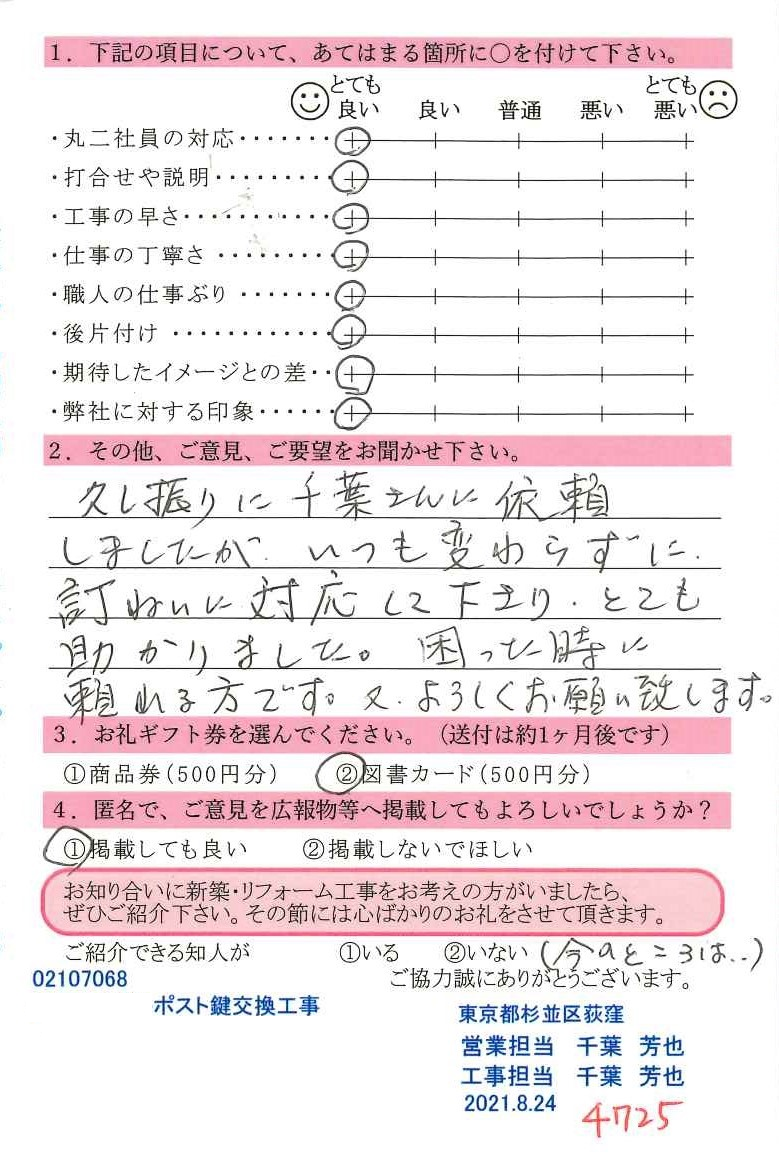 1．下記の項目について、あてはまる箇所に○を付けて下さい。
とても良い 良い 普通 悪い とても悪い
・丸二社員の対応・・・・・・・
・打合せや説明・・・・・・・・・
・工事の早さ・・・・・・・・・・・
・仕事の丁寧さ・・・・・・・・・
・職人の仕事ぶり・・・・・・・
・後片付け・・・・・・・・・・・・
・期待したイメージとの差・・
・弊社に対する印象・・・・・・
2．その他、ご意見、ご要望をお聞かせ下さい。
久し振りに千葉さんに依頼
しましたが、いつも変わらずに、
訂ねいに対応して下さり、とても
助かりました。困った時に
頼れる方です。又、よろしくお願い致します。
3．お礼ギフト券を選んでください。（送付は約1ヶ月後です）
①商品券（500円分） ②図書カード（500円分）
4．匿名で、ご意見を広報物等へ掲載してもよろしいでしょうか？
①掲載しても良い ②掲載しないでほしい
お知り合いに新築・リフォーム工事をお考えの方がいましたら、
ぜひご紹介下さい。その節には心ばかりのお礼をさせて頂きます。
ご紹介できる知人が ①いる ②いない（今のところは..）
ご協力誠にありがとうございます。
02107068
ポスト鍵交換工事
東京都杉並区荻窪
営業担当 千葉 芳也
工事担当 千葉 芳也
2021.8.24
4725